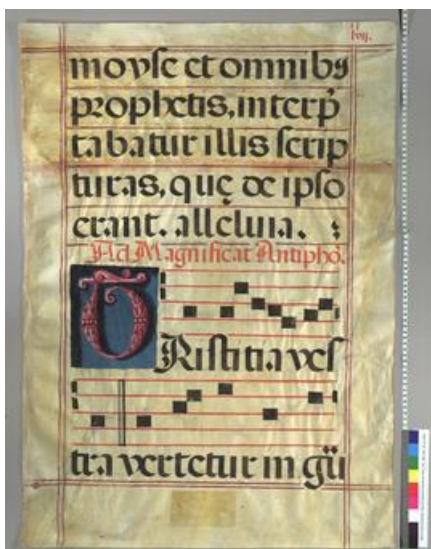 lvij.
moyse et omnibꝰ
prophetis, interp̄
tabatur illis scrip
turas, quę de ipso
erant. alleluia.
Ad Magnificat Antipho.
TRistitia ves
tra vertetur in gaũ